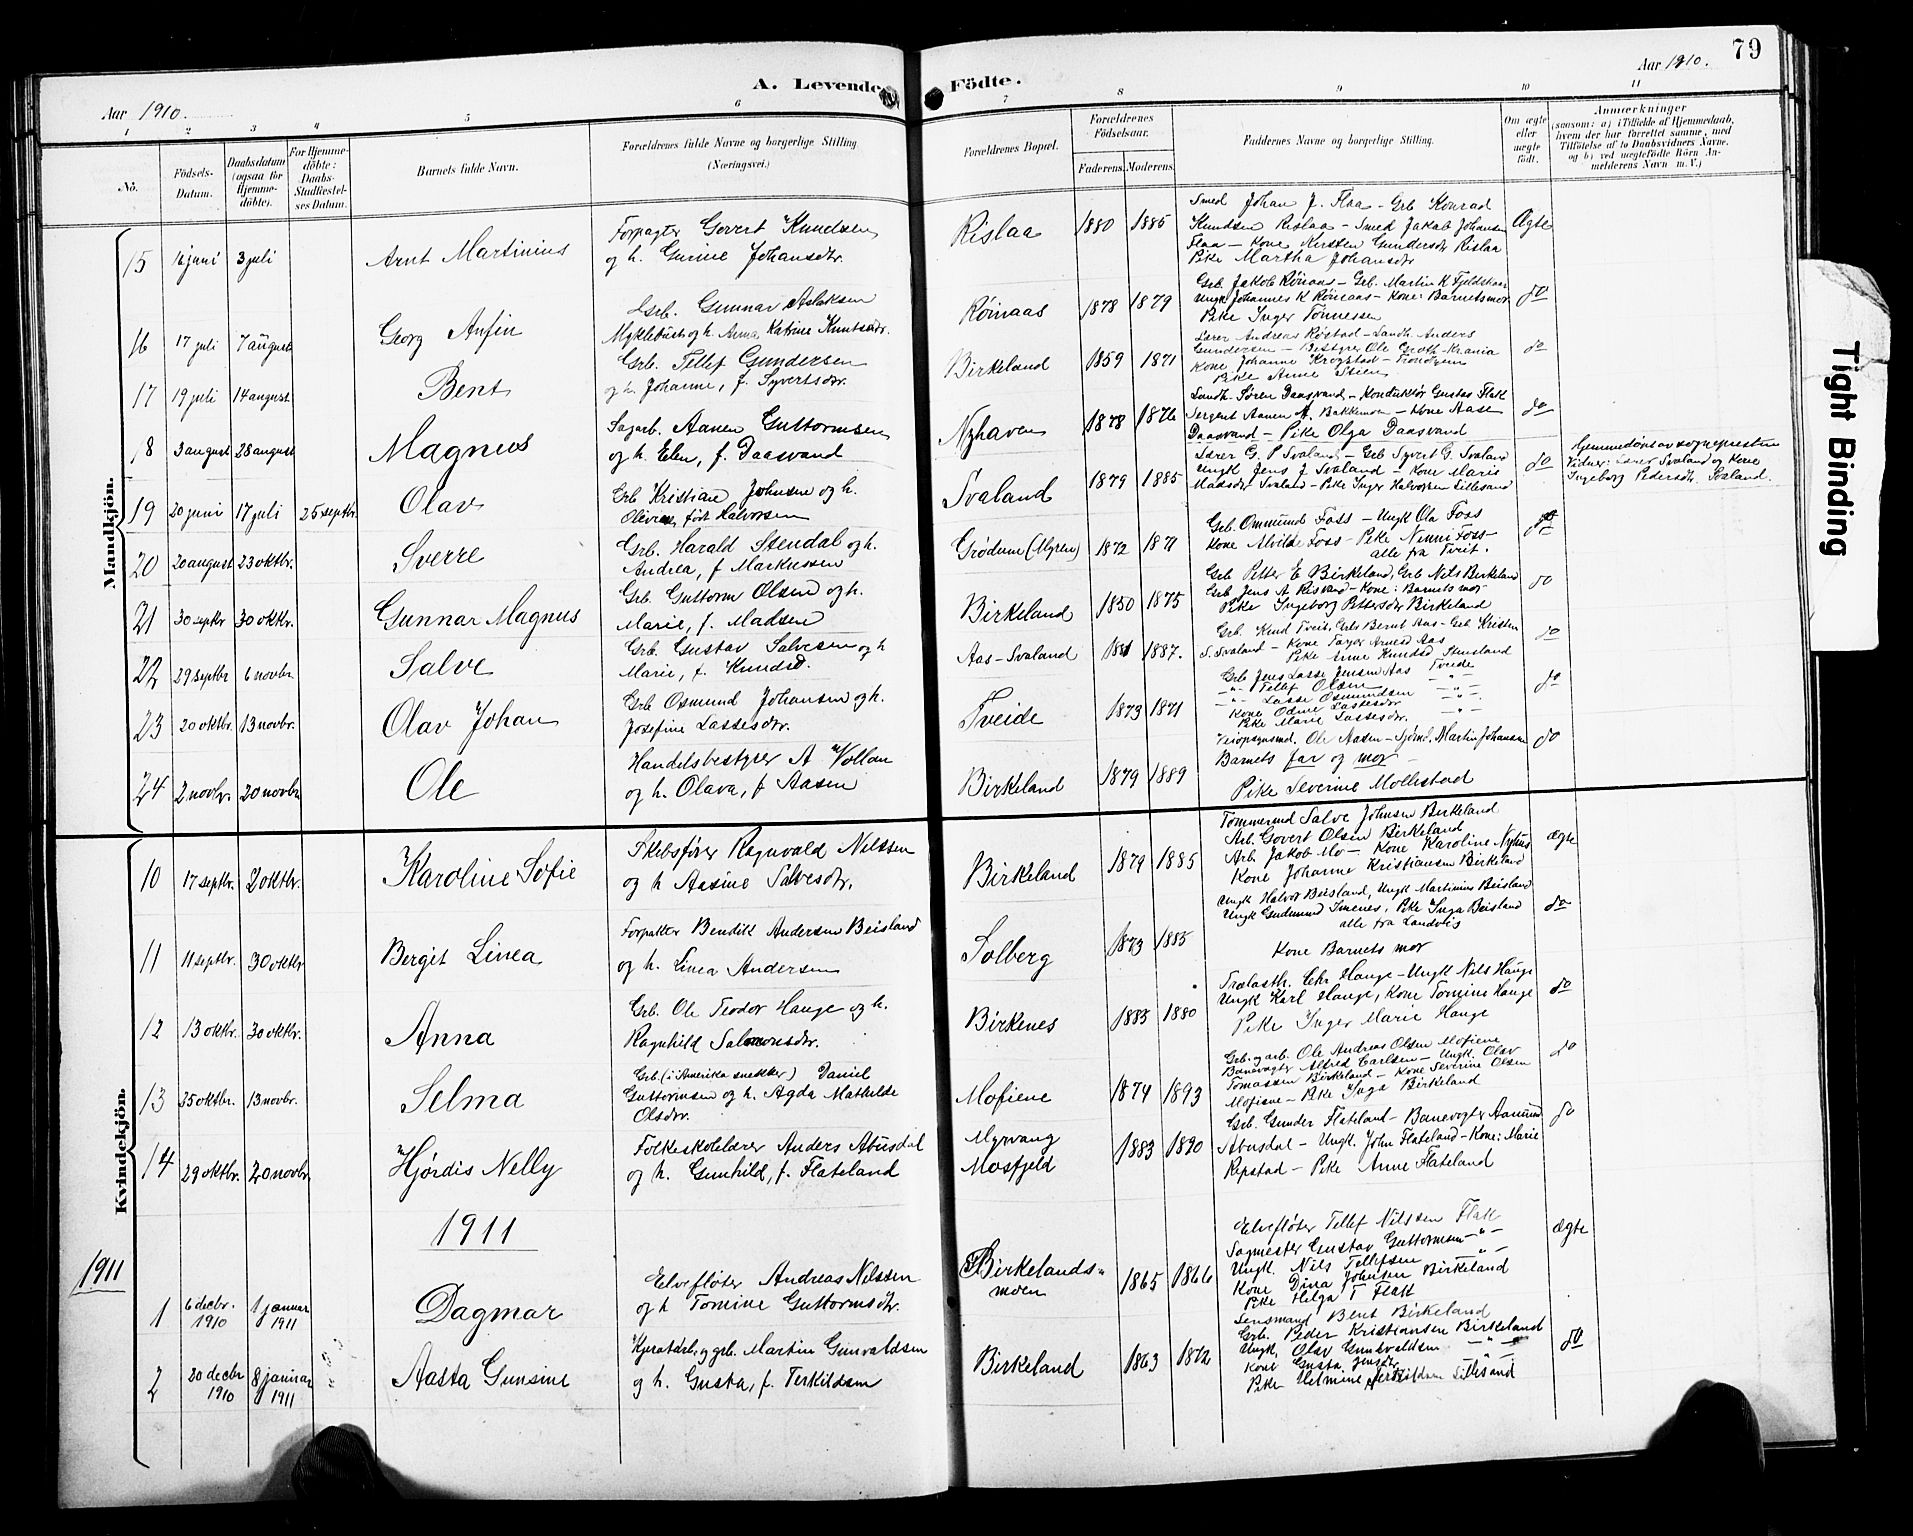 79
Aar 1910.
A. Levende Födte.
Aar 1910.
1 2 3 4 5 6 7 8 9 10 11
No. Födsels-Datum. Daabsdatum (ogsaa for Hjemmedöbte). For Hjemmedöbte: Daabs-Stadfæstelses Datum. Barnets fulde Navn. Forældrenes fulde Navne og borgerlige Stilling. (Næringsvei.) Forældrenes Bopæl. Forældrenes Födselsaar. Faderens. Moderens. Faddernes Navne og borgerlige Stilling. Om ægte eller uægte födt. Anmærkninger
(saasom: a) i Tilfælde af Hjemmedaab, hvem der har forrettet samme, med Tilföielse af to Daabsvidners Navne, og b) ved uægtefödte Börn Anmelderens Navn m. V.)
Mandkjön.
15 3 juli Arnt Martinius
Forpagter Govert Knudsen
og h. Gurine Johansdtr.
Rislaa 1880 1885
Smed Johan J. Flaa - Grb Konrad
Knudsen Rislaa - Smed Jakob Johansen
Flaa - Kone Kersten Gundersdtr Rislaa
Pike Martha Johansdtr
Ægte
16 17 juli 7 august Georg Anfin
Grb. Gunnar Aslaksen
Myklebust og h. Anna Katrine Knutsdtr.
Røinaas 1878 1879
Grb. Jakob Røinaas - Grb. Martin K Fjeldekaas
Ungk Johannes K Røinaas - Kone: Barnets mor
Pike Inger Tönnessen
do
17 19 juli 14 august Bent
Grb. Tellef Gundersen
og h. Johanne, f. Syvertsdtr.
Birkeland 1859 1871
Lærer Andreas Röstad - Landh. Anders
Gundersen - Bestyrer Ole Groth - Krania
Kone Johanne Krogstad - Trondhjem
Pike Anne Stien
do
18 3 august 28 august Magnus
Sagarb. Aanen Guttormsen
og h. Elen, f. Daasvand
Nyhaven 1878 1876
Landh. Søren Daasvand - Konduktør Gustav Flak
Sergent Aanen A. Bakkemoen - Kone Aase
Daasvand - Pike Olga Daasvand
do
19 20 juni 17 juli 25 septbr. Olav
Grb Kristian Johnsen og h.
Olivia, født Halvorsen
Svaland 1879 1885
Lærer G. P Svaland - Grb Syvert G. Svaland
Ungk Jens J. Svaland - Kone Maris
Madsdtr Svaland - Pike Inger Halvorsen Lillesand
do
Hjemmedöbt av sognepresten
Vidner: Lærer Svaland og kone
Ingeborg Pedersdtr. Svaland.
20 20 august 23 oktbr. Sverre
Grb. Harald Stendal og h.
Andrea, f Markussen
Grødum (Myren) 1872 1871
Grb. Ommund Foss - Ungk Ola Foss
Kone Alvilde Foss - Pike Ninni Foss -
alle fra Tveit.
do
21 30 septbr 30 oktbr. Gunnar Magnus
Grb. Guttorm Olsen og h.
Marie, f. Madsen
Birkeland 1850 1875
Grb Petter E Birkeland, Grb Nils Birkeland
Grb Jens A Risvand - Kone: Barnets mor
Pike Ingeborg Pettersdtr Birkeland
do
22 29 septbr 6 novbr. Salve
Grb. Gustav Salvesen og h
Marie, f. Knudsd.
Aas-Svaland 1881 1887.
Grb. Knud Tveit, Grb Bernt Aas - Grb Kristen
S. Svaland - Kone Tager Arnesd Aas
Pike Anne Knudsd Stensland
do
23 20 oktbr. 13 novbr. Olav Johan
Grb Osmund Johansen og h.
Josefine Lassesdtr.
Tveide 1873 1871
Grb Jens Lasse Jensen Aas Tveide
-"- Tellef Olsen -"-
-"- Lasse Osmundsen -"-
Kone Odine Lassesdtr -"-
Pike Marie Lassesdtr. -"-
do
24 2 novbr. 20 novbr. Ole
Handelsbestyrer A Vollan
og h. Olava, f. Aasen
Birkeland 1879 1889
Veiopsynsmd. Ole Aasen - Sjömd. Martin Johansen
Barnets far og mor -
Pike Severine Mollestad
do
Kvindekjön.
10 17 septbr. 2 oktbr. Karoline Sofie
Skibsfører Ragnvald Nilssen
og h Aasine Salvesdtr.
Birkeland 1879 1885
Tømmermd Salve Johnsen Birkeland
Arb. Govert Olsen Birkeland
Arb Jakob Mo - Kone Karoline Nyhus
Kone Johanne Kristiansen Birkeland
ægte
11 11 septbr. 30 oktbr Bergit Linea
Forpakter Bendikt Andersen Beisland
og h. Linea Andersen
Solberg 1873 1885
Ungk Halvor Beisland, Ungk Martinius Beisland
Ungk Gudmund Imenes, Pike Inga Beisland
alle fra Landvik
Kone Barnets mor
do
12 13 oktbr. 30 oktbr. Anna
Grb. Ole Teodor Hauge og h.
Ragnhild Salmonsdtr.
Birkenes 1883 1880
Trælasth. Chr Hauge - Ungk Nils Hauge
Ungk Karl Hauge, Kone Tomine Hauge
Pike Inger Marie Hauge
do
13 25 oktbr. 13 novbr. Selma
Grb. (i Amerika snekker) Daniel
Guttormsen og h. Agda Mathilde
Olsdtr.
Mofiene 1874 1893
Grb. og arb. Ole Andreas Olsen Mofiene
Banevogter Alfred Carlsen - Ungk. Olav
Tomassen Birkeland - Kone Severine Olsen
Mofiene - Pike Inga Birkeland
do
14 29 oktbr. 20 novbr. Hjørdis Nelly
Folkeskolelærer Anders Abusdal
og h. Gunhild, f. Flateland
Myrvang
Mosfjeld 1883 1890
Grb. Gunder Flateland - Banevogter Aanund
Abusdal - Ungk. John Flateland - Kone: Marie
Repstad - Pike Anne Flateland
do
1911
1911
1 6 decbr. 1910 1 januar 1911 Dagmar
Elvefløter Andreas Nilssen
og h Tomine Guttormsdtr.
Birkelands-
moen 1865 1866
Elvefløter Tellef Nilssen Flak
Sagmester Gustav Guttormsen -"-
Ungk. Nils Tellefsen -"-
Kone Dina Johnsen Birkeland
Pike Helga T Flak
ægte
2 20 decbr 1910 8 januar 1911 Aasta Gunsine
og grb. Martin Gunvaldsen
og h. Gusta, f. Terkildsen
Birkeland 1863 1872
Lensmand Bent Birkeland
Grb. Peder Kristiansen Birkeland
Ungk. Olav Gunvaldsen -"-
Kone Gusta Jensdtr -"-
Pike Helmine Terkildsen Lillesand
do
Tight Binding